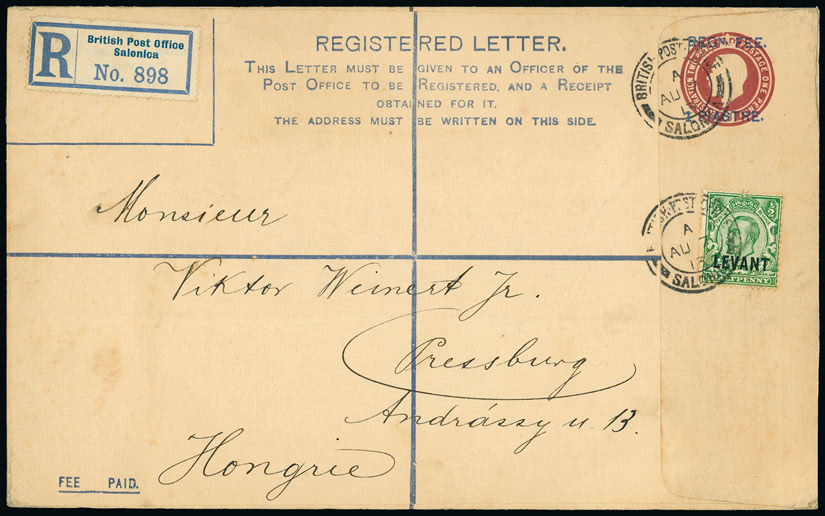 R
British Post Office
Salonica
No. 898
REGISTERED LETTER.
THIS LETTER MUST BE GIVEN TO AN OFFICER OF THE
POST OFFICE TO BE REGISTERED, AND A RECEIPT
OBTAINED FOR IT.
THE ADDRESS MUST BE WRITTEN ON THIS SIDE.
REGN. FEE.
1 PIASTRE.
BRITISH POST
A
AU
SALON
Monsieur
A
AU
SALON
LEVANT
Viktor Weinert Jr.
Pressburg
Andrássy u. 13.
Hongrie
FEE PAID.